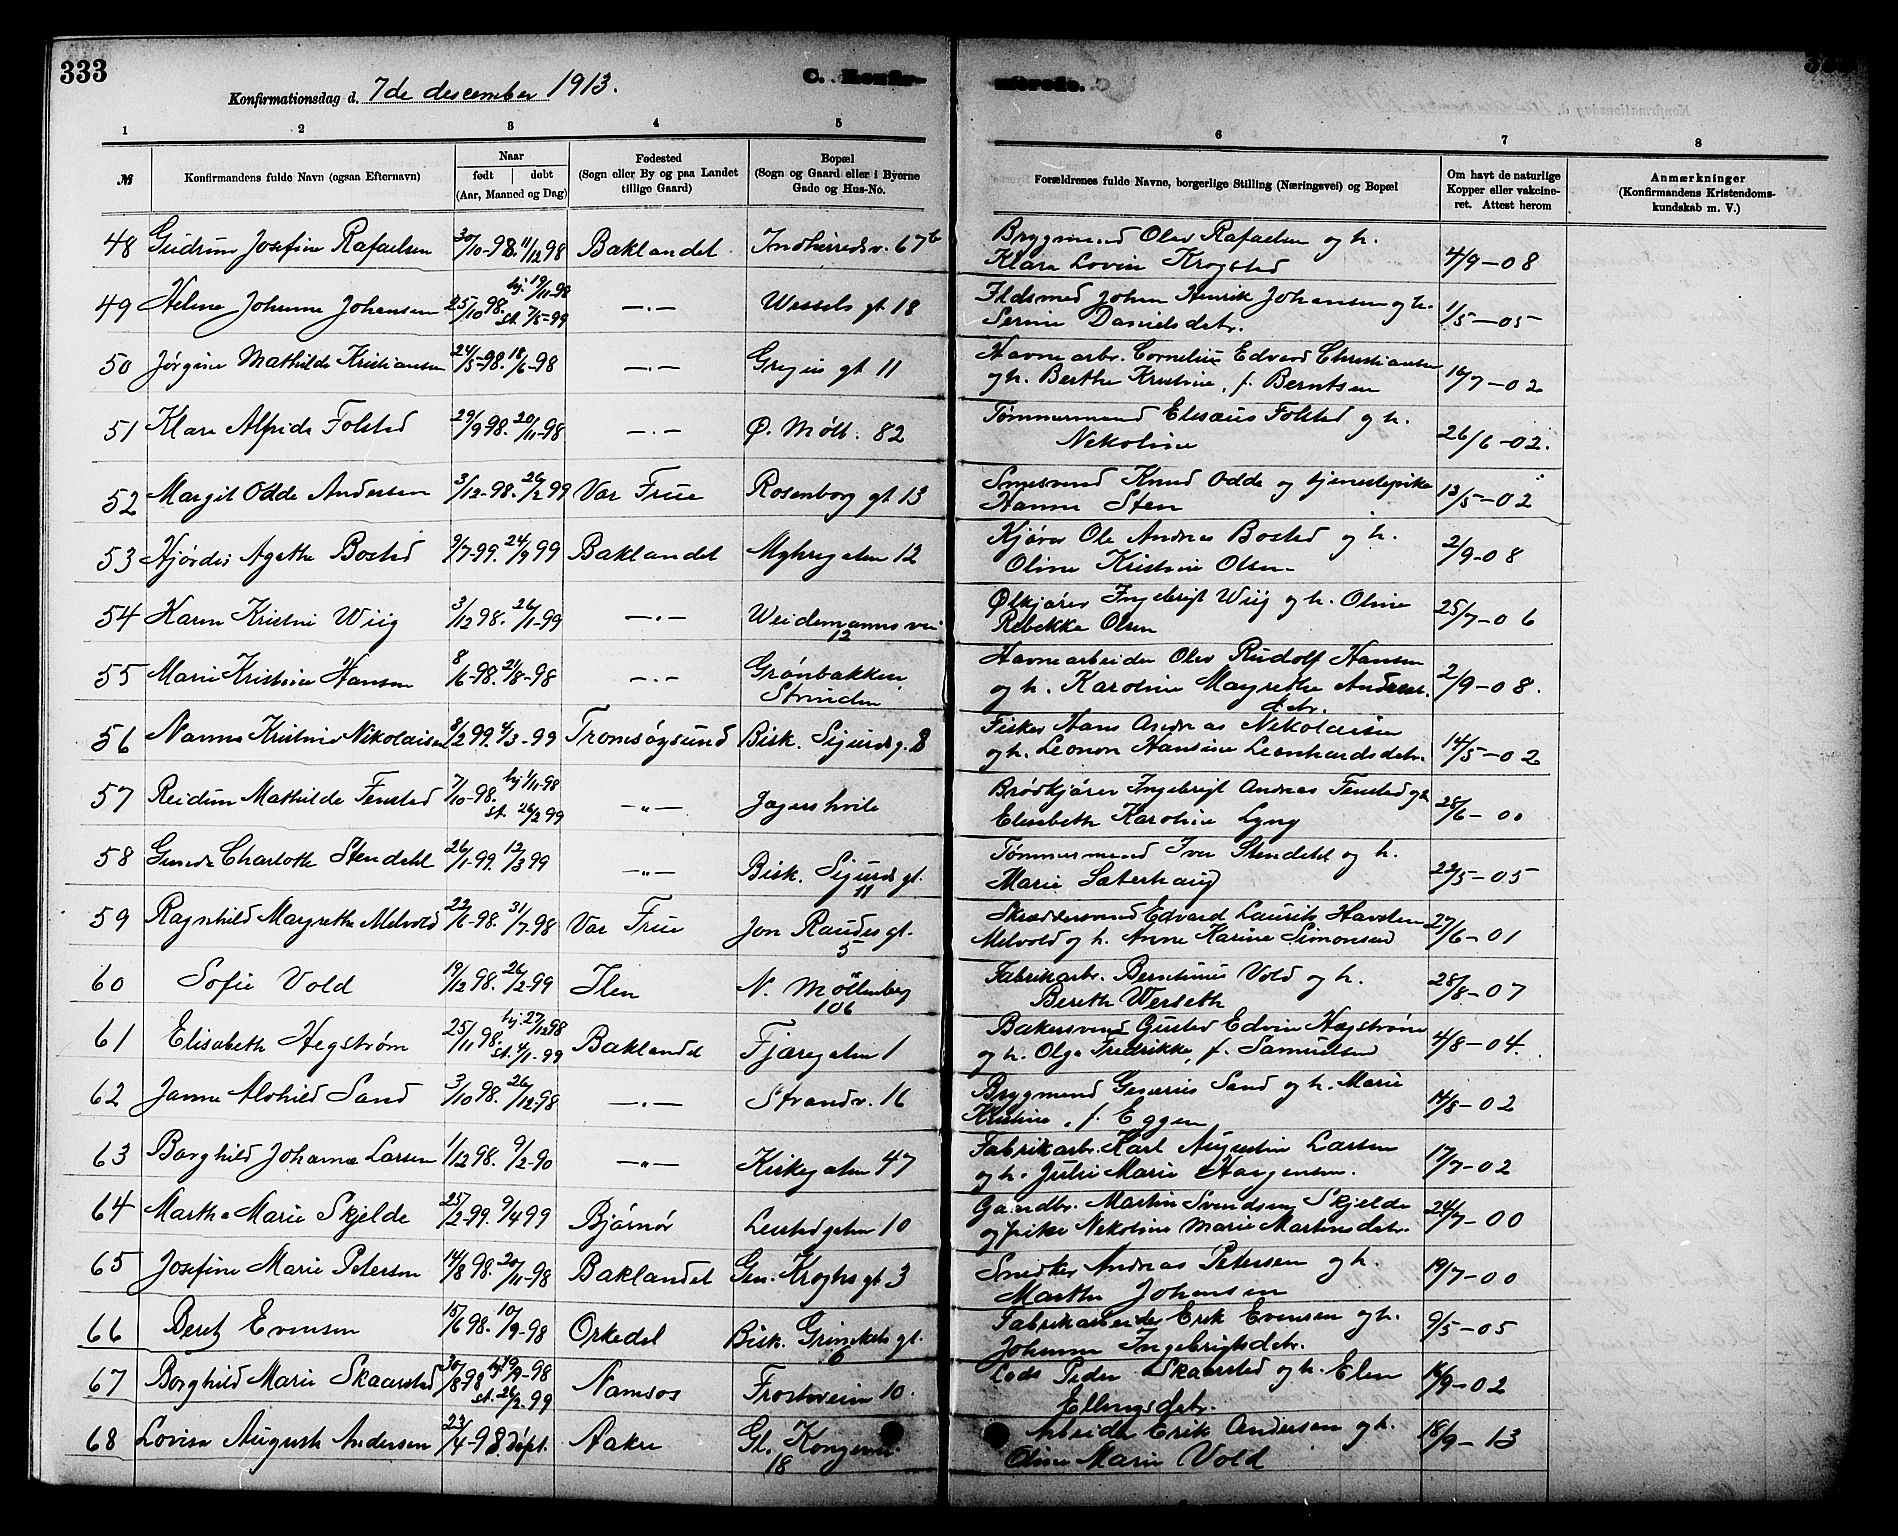 333
Konfirmationsdag d. 7de descember 1913.
C. Konfir-
merede.
1 2 3 4 5 6 7 8
№
Konfirmandens fulde Navn (ogsaa Efternavn)
Naar
født døbt
(Aar, Maaned og Dag)
Fødested
(Sogn eller By og paa Landet
tillige Gaard)
Bopæl
(Sogn og Gaard eller i Byerne
Gade og Hus-No.
Forældrenes fulde Navne, borgerlige Stilling (Næringsvei) og Bopæl
Om havt de naturlige
Kopper eller vakcine-
ret. Attest herom
Anmærkninger
(Konfirmandens Kristendoms-
kundskab m. V.)
48 Gudrun Josefine Rafaelsen 30/10-98. 11/12 98 Baklandet Indherredsv. 67b Brygmand Olav Rafaelsen og h. 4/9-08
Klara Lovise Krogstad
49 Helene Johanne Johansen 25/10 98. hj. 19/11-98 st. 7/5=99 -.- Wessels gt 18 Ildsmed Johan Henrik Johansen og h. 1/5-05
Serine Danielsdatr.
50 Jørgine Mathilde Kristiansen 24/5-98. 18/6-98 -.- Gregus gt 11 Havnearb. Cornelius Edvard Christiansen 16/7-02
og h. Berthe Kristine, f. Berntsen
51 Klara Alfrida Folstad 29/9 98. 20/11-98 -.- Ø. Møll. 82 Tømmermand Elisæus Folstad og h. 26/6-02.
Nekoline
52 Margit Odde Andersen 3/12-98. 26/2 99 Var Frue Rosenborg gt 13 Smesvend Knud Odde og tjenestepike 12/5-02
Hanna Sten
53 Hjørdis Agathe Bostad 9/7-99. 24/9 99 Baklandet Myhregaten 12 Kjører Ole Andreas Bostad og h. 2/9-08
Oline Kristine Olsen
54 Karen Kristine Wiig 3/12 98. 26/1-99 -.- Weidemannsvei Ølkjører Ingebrigt Wiig og h. Oline 25/7-06
12 Rebekka Olsen
55 Marie Kristine Hansen 8/6-98. 21/8-98 -.- Grønbakken Havnearbeider Olav Rudolf Hansen 2/9-08.
Strinden og h. Karoline Margrethe Anders.
datr.
56 Nanna Kristine Nikolaisen 8/2 99. 4/3-99 Tromsøysund Bisk. Sigurds g. 8 Fisker Hans Andreas Nikolaisen 14/5-02
og h. Leonore Hansine Leonhardsdatr.
57 Reidun Mathilde Fenstad 7/10-98. hj 1/11-98 st. 26/2 99 -„- Jagershvile Brødkjører Ingebrigt Andreas Fenstad og h 28/6-00
Elisabeth Karoline Lyng
58 Gunda Charlotte Stendahl 26/1-99. 12/3 99 -„- Bisk. Sigurds gt. Tømmermand Iver Stendahl og h. 22/5-05
11 Marie Saterhaug
59 Ragnhild Margrethe Melvold 22/6-98. 31/7-98 Var Frue Jon Raudes gt. Skræddersvend Edvard Laurits Havsten 27/6-01
5 Melvold og h. Anne Karine Simonsen
60 Sofie Vold 19/12 98. 26/2-99 Ilen N. Møllenberg Fabrikarb. Berntinus Vold og h. 28/8-07
106 Bereth Werseth
61 Elisabeth Hegstrøm 25/11 98. hj. 27/12 98 st. 4/1-99 Baklandet Fjæregaten 1 Bakersvend Gustav Edvin Hægstrøm 4/8-04.
og h. Olga Fredrikke, f. Samuelsen
62 Janna Alvhild Sand 3/10 98. 26/12-98 -.- Strandv. 16 Brygmand Generius Sand og h. Marie 14/8-02
Kristine, f. Eggen
63 Borghild Johanna Larsen 1/12 98. 9/2-90 -„- Kirkegaten 47 Fabrikarb. Karl Augustin Larsen 17/7-02
og h. Julie Marie Haagensen.
64 Martha Marie Skjelde 25/2-99. 9/4 99 Bjørnør Leistadgaten 10 Gaardbr. Martin Svendsen Skjelde 24/7-00
og pike Nekoline Marie Martinsdatr.
65 Josefine Marie Petersen 14/8 98. 20/11-98 Baklandet Gen. Kroghs gt 3 Snedker Andreas Petersen og h. 19/7-00
Martha Johansen
66 Beret Evensen 15/6 98. 10/9-98 Orkedal Bisk. Grimkels gt. Fabrikarbeider Erik Evensen og h. 9/5-05
6 Johanna Ingebrigtsdatr.
67 Borghild Marie Skaarstad 30/8-98 hj 19/9-98 st. 26/2 99 Namsos Frostaveien 10. Lods Peder Skaarstad og h. Elen 16/9-02
Ellingsdatr.
68 Lovise Augusta Andersen 22/4-98 døpt. Aaker Gl. Kongevei Arbeider Erik Andersen og h. 18/9-13
18 Oline Marie Vold